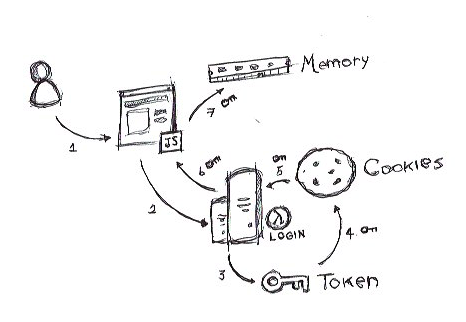 Memory
7
JS
1
6
5
Cookies
2
λ
LOGIN
4.
3
Token